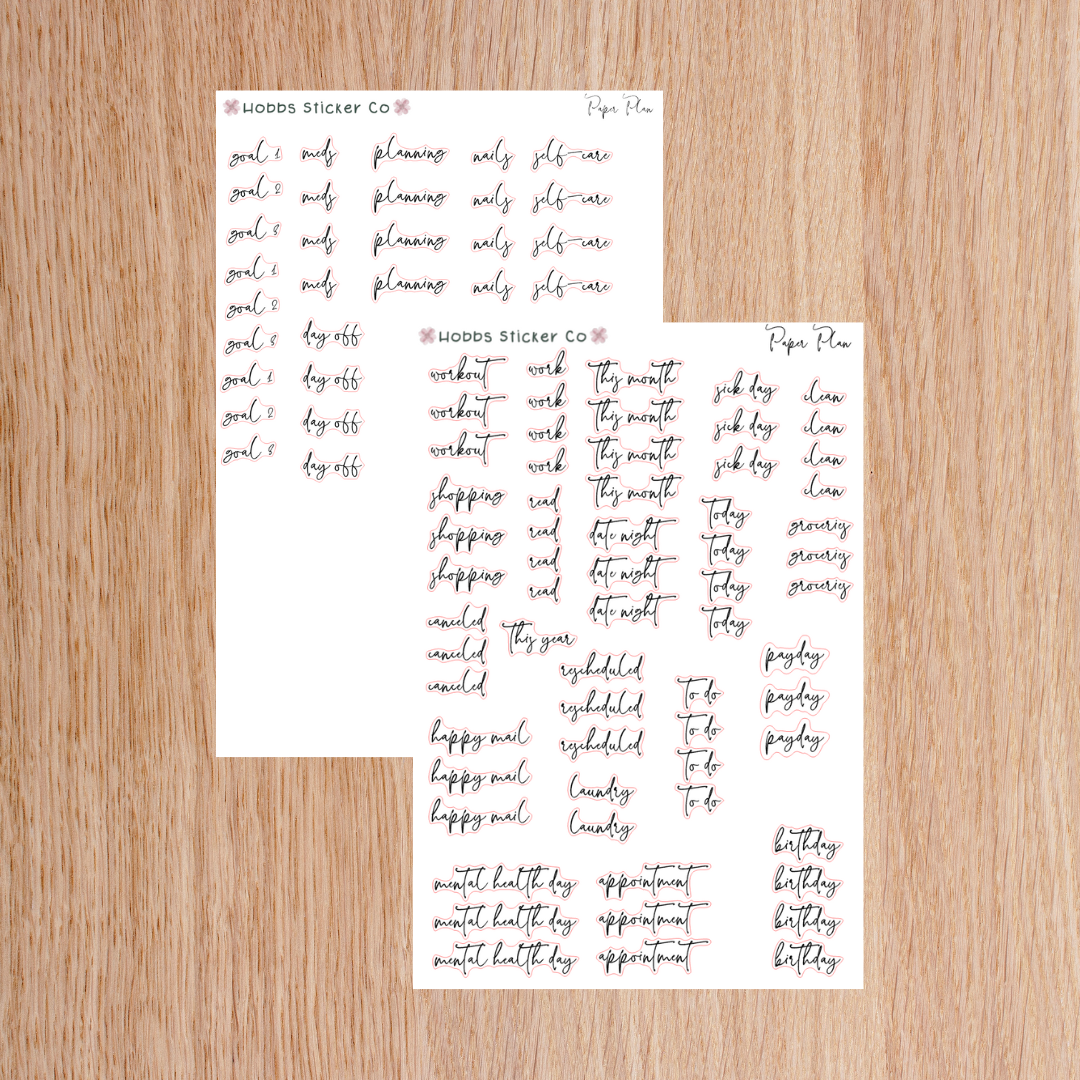 Hobbs Sticker Co
Paper Plan
goal 1
goal 2
goal 3
goal 1
goal 2
goal 3
goal 1
goal 2
goal 3
meds
meds
meds
meds
day off
day off
day off
day off
planning
planning
planning
planning
nails
nails
nails
nails
self-care
self-care
self-care
self-care
Hobbs Sticker Co
Paper Plan
workout
workout
workout
shopping
shopping
shopping
canceled
canceled
canceled
happy mail
happy mail
happy mail
work
work
work
work
read
read
read
read
This year
this month
this month
this month
this month
date night
date night
date night
rescheduled
rescheduled
rescheduled
Laundry
Laundry
sick day
sick day
sick day
Today
Today
Today
Today
To do
To do
To do
To do
clean
clean
clean
clean
groceries
groceries
groceries
payday
payday
payday
mental health day
mental health day
mental health day
appointment
appointment
appointment
birthday
birthday
birthday
birthday